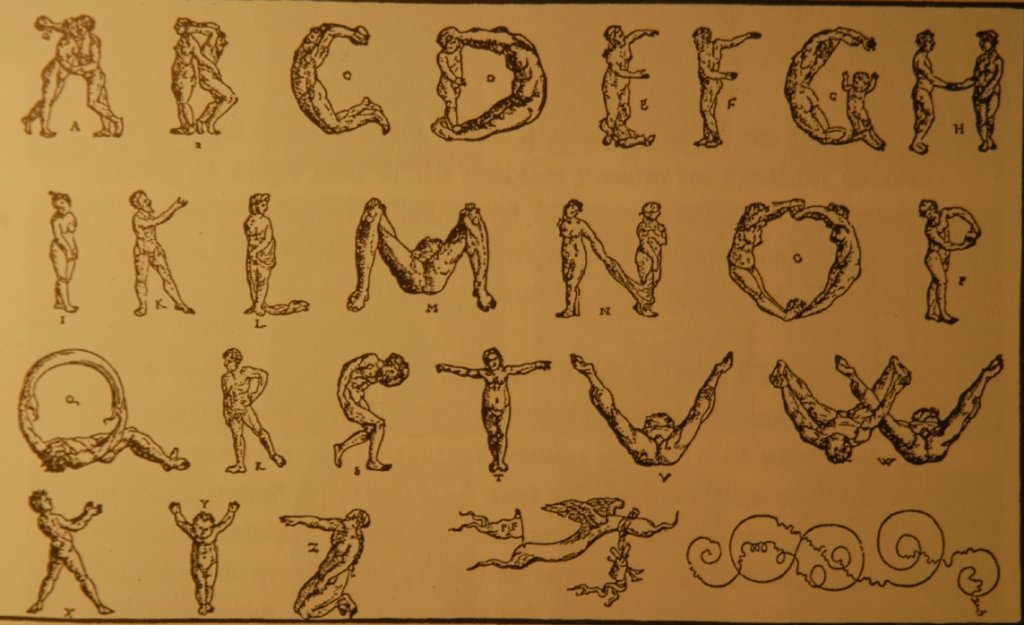 A B C D E F G H
I K L M N O P
Q R S T V W
X Y Z